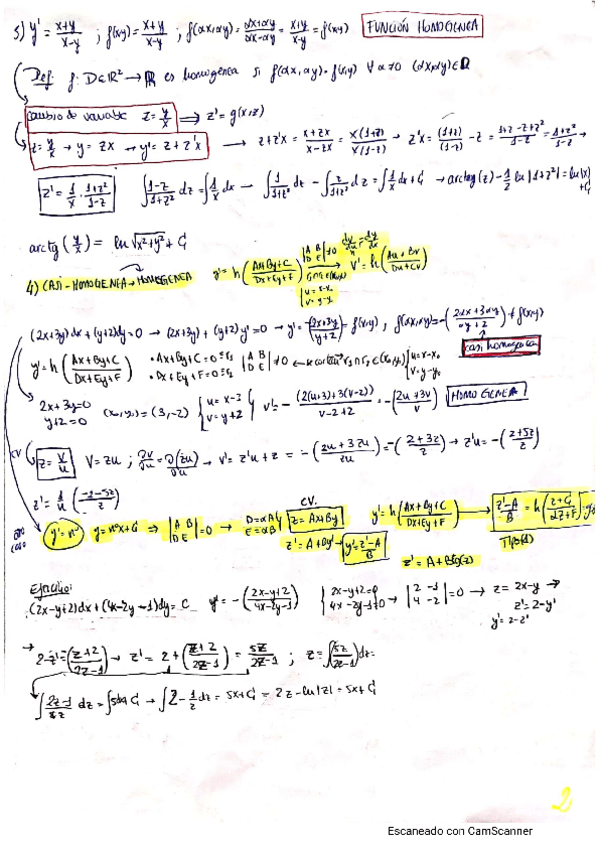 3) y' = x+y/x-y ; f(x,y) = x+y/x-y ; f(αx,αy) = αx+αy/αx-αy = x+y/x-y = f(x,y) FUNCIÓN HOMOGENEA
Def: f: D⊂R² → R es homogénea si f(αx,αy) = f(x,y) ∀α≠0 (αx,αy)∈D
cambio de variable z = y/x ⇒ z' = g(x,z)
z = y/x → y = zx → y' = z + z'x → z+z'x = x+zx/x-zx = x(1+z)/x(1-z) → z'x = (1+z)/(1-z) - z = 1+z-z+z²/1-z = 1+z²/1-z →
z' = 1/x · 1+z²/1-z ∫ 1-z/1+z² dz = ∫ 1/x dx → ∫ 1/1+z² dz - ∫ z/1+z² dz = ∫ 1/x dx + C → arctg(z) - 1/2 ln|1+z²| = ln|x| + C
arctg(y/x) = ln√x²+y² + C
4) CASI-HOMOGENEA → HOMOGENEA y' = h(Ax+By+C/Dx+Ey+F) |A B D E| ≠0 v' = h(Au+Bv/Du+Ev)
(2x+3y)dx + (y+2)dy = 0 → (2x+3y) + (y+2)y' = 0 → y' = -(2x+3y/y+2) = f(x,y) ; f(αx,αy) = -(2αx+3αy/αy+2) ≠ f(x,y)
casi homogenea
y' = h(Ax+By+C/Dx+Ey+F) • Ax+By+C=0≡r₁ • Dx+Ey+F=0≡r₂ |A B D E| ≠0 r₁∩r₂ ∈(x₀,y₀) {u=x-x₀ v=y-y₀
2x+3y=0 y+2=0 (x₀,y₀) = (3,-2) {u=x-3 v=y+2 v' = -(2(u+3)+3(v-2)/v-2+2) = -(2u+3v/v) HOMOGENEA!
CV z = v/u v = zu ; ∂v/∂u = ∂(zu)/∂u → v' = z'u+z = -(2u+3zu/zu) = -(2+3z/z) → z'u = -(2+5z/z)
z' = 1/u (-2-5z/z)
|A B D E| = 0 → D=αA E=αB CV. z=Ax+By y' = h(Ax+By+C/Dx+Ey+F) → z'-A/B = h(z+C/αz+F)
z' = A+By' → y' = z'-A/B
z' = A+Bg(z)
Ejercicio:
(2x-y+2)dx + (4x-2y-1)dy = C y' = -(2x-y+2/4x-2y-1) {2x-y+2=0 4x-2y-1=0 → |2 -1 4 -2| = 0 → z = 2x-y →
z' = 2-y'
y' = 2-z'
→ 2-z' = (z+2/2z-1) → z' = 2+(z+2/2z-1) = 5z/2z-1 ; z = ∫(5z/2z-1)dz
∫ 2z-1/z dz = ∫5dx + C → ∫ 2 - 1/z dz = 5x+C = 2z - ln|z| = 5x+C
2
Escaneado con CamScanner